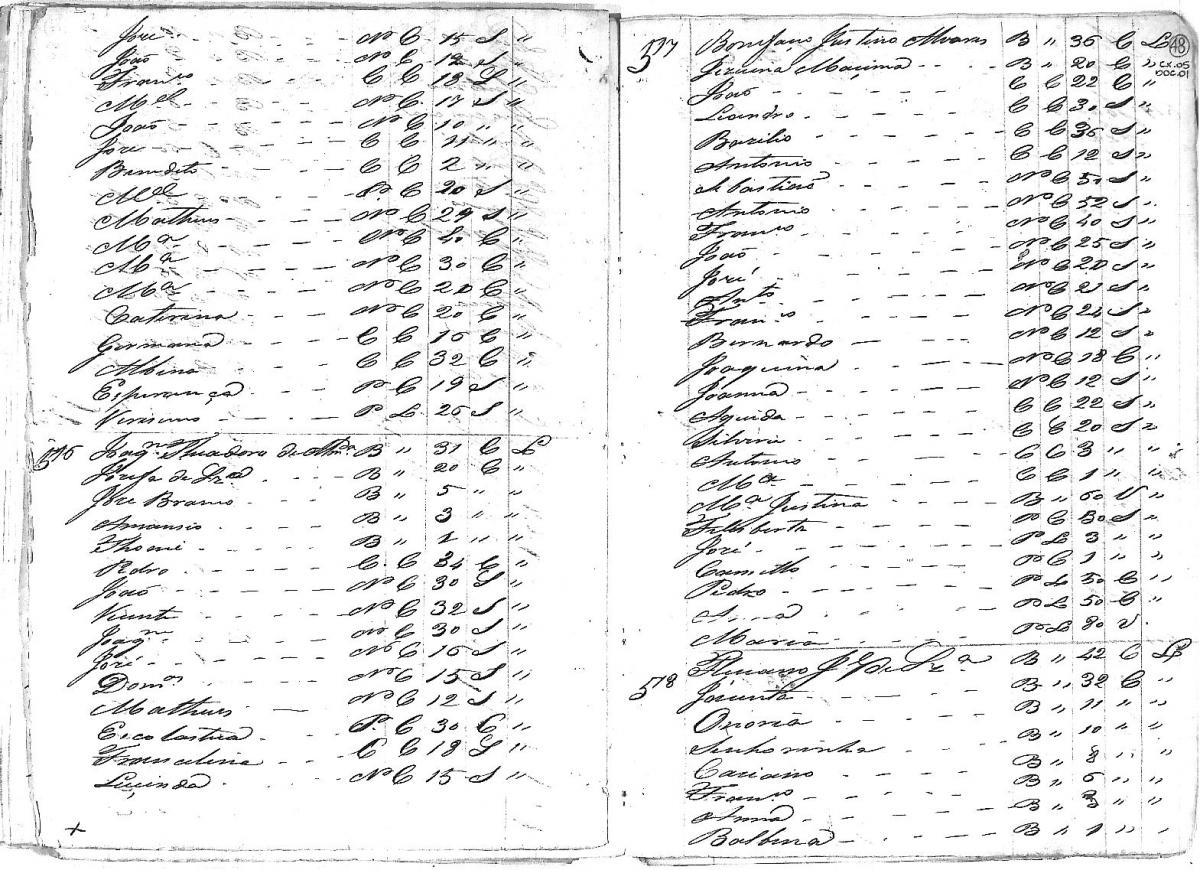 José - - - N C 15 S "
João - - - N C 12 S "
Franco - - - C C 18 S "
Mel - - - N C 17 S "
João - - - N C 10 " "
José - - - C C 11 " "
Benedito - - - C C 2 " "
Mel - - - P C 20 S "
Matheus - - - N C 29 S "
Ma - - - N C 40 C "
Ma - - - N C 30 C "
Ma - - - N C 20 C "
Caterina - - - N C 20 C "
Germana - - - C C 16 C "
Albina - - - C C 32 C "
Esperança - - - P C 19 S "
Verissimo - - - P L 26 S "
576 Joaqm Theadoro de B " 31 C L
Josefa de B " 20 C "
José Bramo B " 5 " "
Amansio - - - B " 3 " "
Thomé - - - B " 1 " "
Pedro - - - C C 34 C "
João - - - N C 30 S "
Vicente - - - N C 32 S "
Joaqm - - - N C 30 S "
José - - - N C 16 S "
Domos - - - N C 15 S "
Matheus - - - N C 12 S "
Escolastica - - - P C 30 C "
Francelina - - - C C 18 S "
Lucinda - - - N C 15 S "
+
48
CX.05
DOC.01
577 Bonifano Justino Alvares B " 36 C L
Maxima - - B " 20 C "
João - - - C C 22 C "
Leandro - - - C C 30 S "
Bazilio - - - C C 36 S "
Antonio - - - C C 12 S "
Sebastião - - - N C 50 S "
Antonio - - - N C 52 S "
Franco - - - N C 40 S "
João - - - N C 25 S "
José - - - N C 20 S "
Anto - - - N C 21 S "
Franco - - - N C 24 S "
Bernardo - - - N C 12 S "
Joaquina - - - N C 18 C "
Joanna - - - N C 12 S "
Aguida - - - C C 22 S "
Silveria - - - C C 20 S "
Antonio - - - C C 3 " "
Ma - - - C C 1 " "
Ma Justina - - - B " 60 V "
Filisberta - - - P C 50 S "
José - - - P L 3 " "
Camillo - - - P C 1 " "
Pedro - - - P L 50 C "
Anna - - - P L 50 C "
Maria - - - P L 80 V "
578 B " 42 C L
Jacinta - - - B " 32 C "
Onoria - - - B " 11 " "
Senhorinha - - - B " 10 " "
Cariano - - - B " 8 " "
Franco - - - B " 6 " "
Anna - - - B " 3 " "
Balbina - - - B " 1 " "